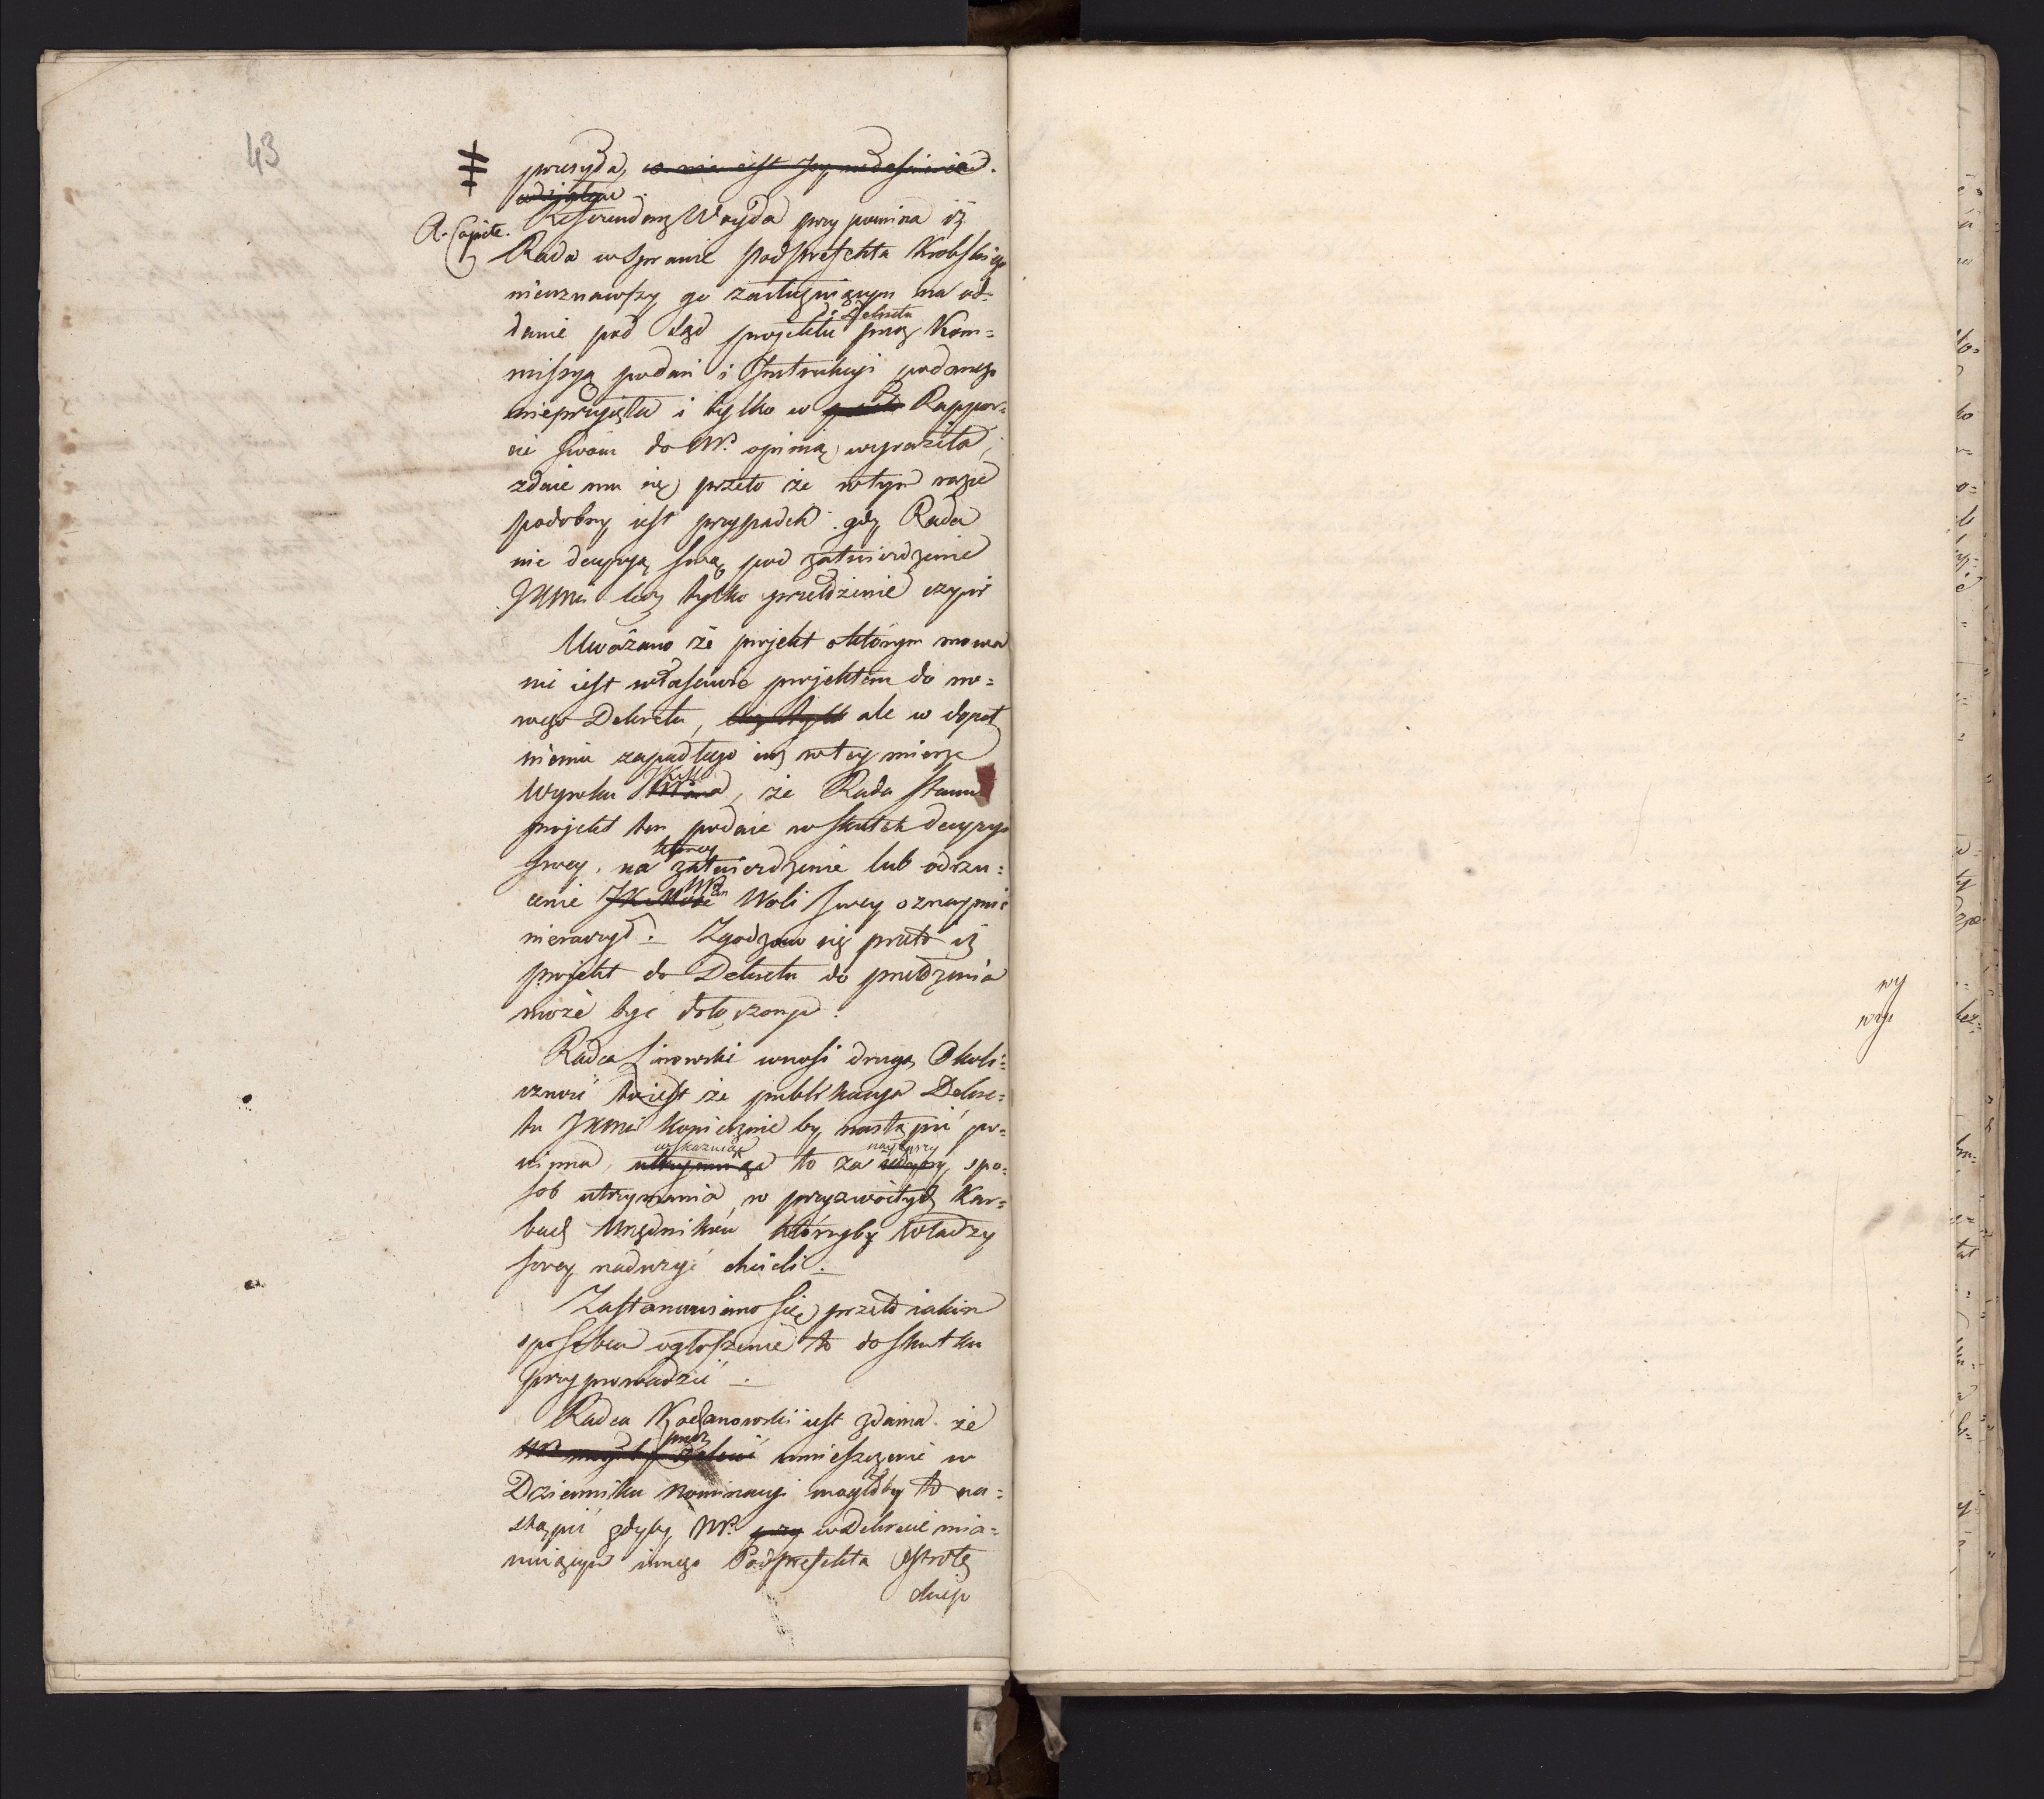 43
przesyła, co nie iest Jey
A. Capite. Referendarz Wayda przypomina iż
Rada w sprawie Podprefekta Krobskiego
nieuznawszy go zasługuiącym na od=
danie pod Sąd projektu do Dekretu przez Kom=
missyą podań i Instrukcyi podanego
nieprzyięła i tylko w Rappor=
cie swoim do NP. opinią wyraziła,
zdaie mu się przeto że w tym razie
podobny iest przypadek gdy Rada
nie decyzyą swą pod zatwierdzenie
JKMci lecz tylko przełożenie czyni
Uważano że projekt o którym mowa
nie iest właściwie projektem do no=
wego Dekretu, lecz tylko ale w dopeł
nieniu zapadłego iuż w tey mierze
Wyroku NPana JKMci, że Rada Stanu
projekt ten podaie w skutek decyzyi
swey, na zatwierdzenie lub odrzu=
cenie JKMości NPan Woli swey oznaymić
nieraczył. Zgodzono się przeto iż
projekt do Dekretu do przełożenia
może być dołączonym.
Radca Linowski wnosi drugą Okoli=
czność to iest że publikacya Dekre=
tu JKMci koniecznie by nastąpić po=
winna, wskazuiąc to za naylepszy spo=
sob utrzymania w przyzwoitych Kar=
bach Urzędników którzyby Władzy
swey nadużyć chcieli.
Zastanawiano się przeto iakim
sposobem ogłoszenie to do skutku
przyprowadzić.
Radca Kochanowski iest zdania że
przez umieszczenie w
Dzienniku Nominacyi mogłoby to na=
stąpić gdyby NP. przy w Dekrecie mia=
nuiącym innego Podprefekta Ostrołę
ckiego
wy
wy